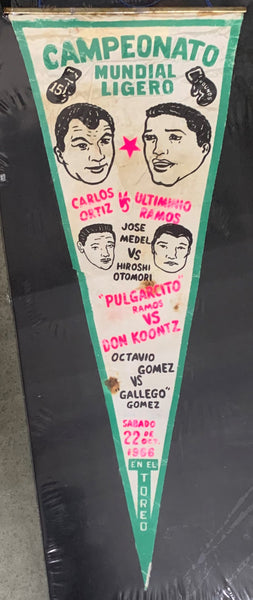 CAMPEONATO
MUNDIAL
LIGERO
15
CARLOS ORTIZ VS ULTIMINIO RAMOS
JOSE
MEDEL
VS
HIROSHI
OTOMORI
"PULGARCITO"
RAMOS
VS
DON KOONTZ
OCTAVIO
GOMEZ
VS
GALLEGO"
GOMEZ
SABADO
22 DE OCT.
1966
EN EL
TOREO